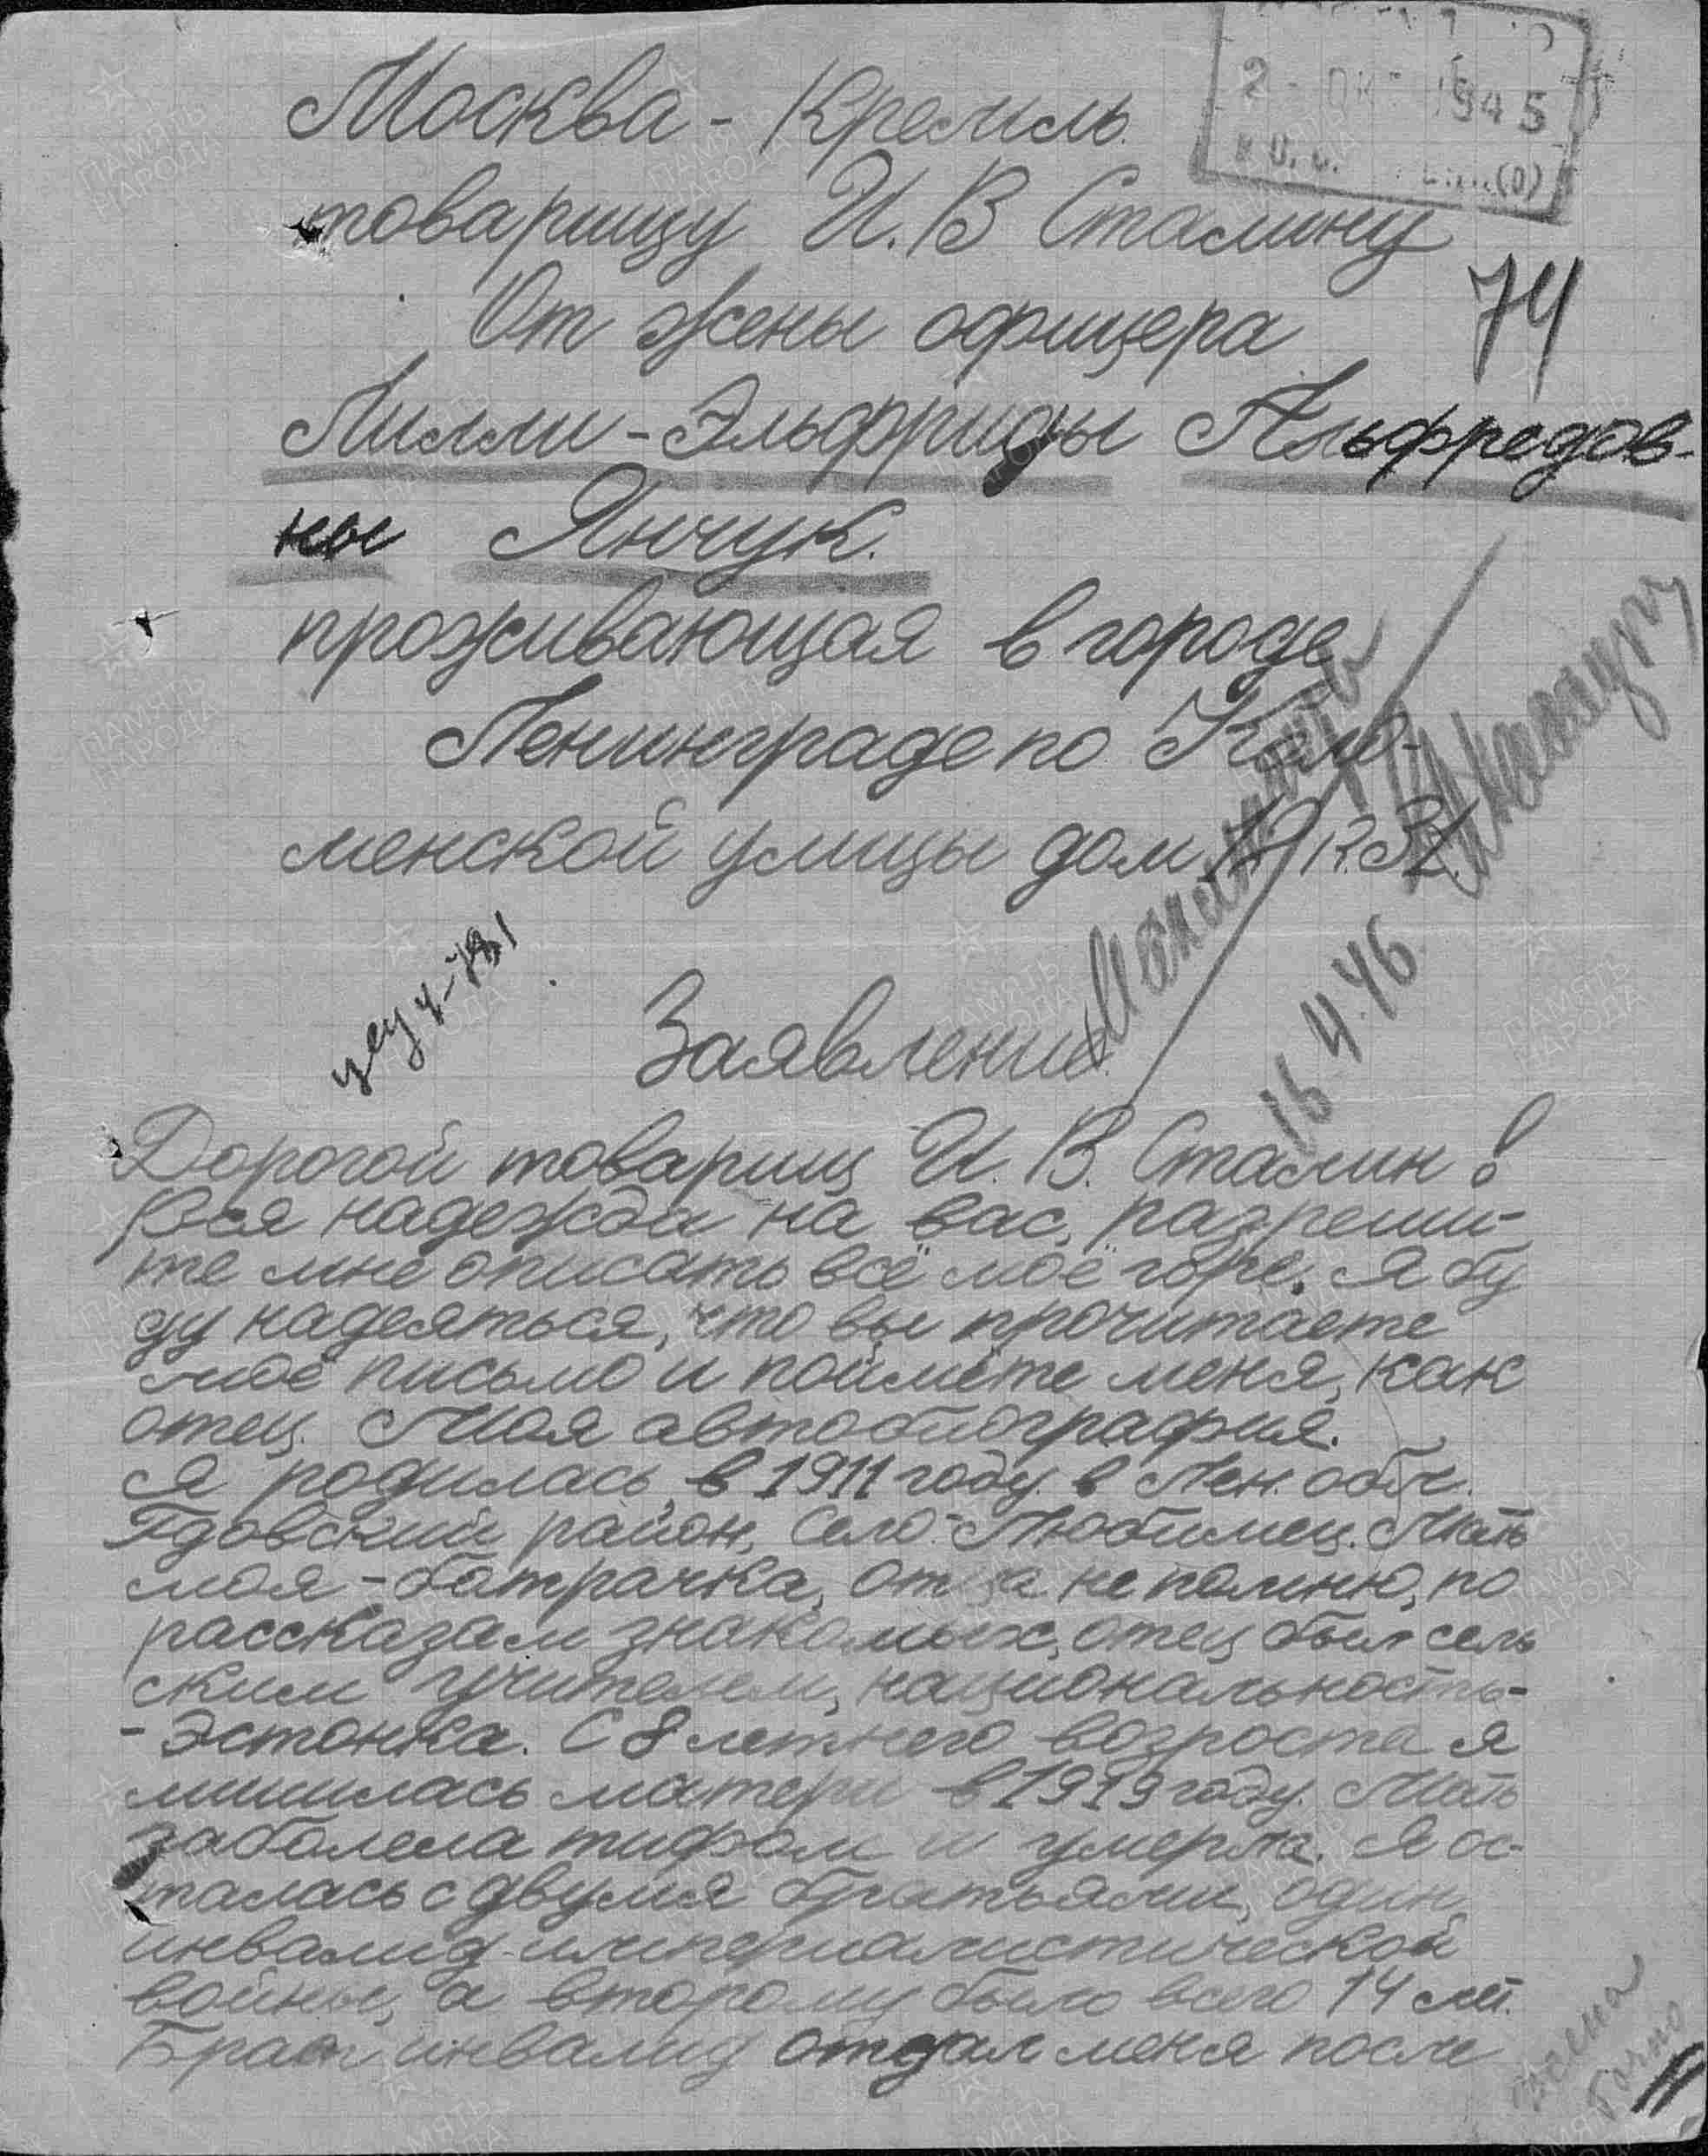 2 ОК 1945
(О)
Москва - Кремль.
товарищу И. В Сталину
74
От жены офицера
Лилли - Эльфриды Альфредов-
ны Янчук.
проживающая в городе
Ленинграде по Коло-
менской улицы дом
16 4.46
Заявление.
Дорогой товарищ И. В. Сталин!
Вся надежда на вас, разреши-
те мне описать всё моё горе. Я бу
ду надеяться, что вы прочитаете
моё письмо и поймёте меня, как
отец. Моя автобиография.
Я родилась в 1911 году в Лен. обл.
Гдовский район, село-Любимец. Мать
моя - батрачка, отца не помню, по
рассказам знакомых, отец был сель
ским учителем, национальность-
- Эстонка. С 8 летнего возроста я
лишилась матери в 1919 году. Мать
заболела тифом и умерла. Я ос-
талась с двумя братьями, один,
инвалид империалистической
войны, а второму было всего 14 лет.
Брат инвалид отдал меня после
11
ПАМЯТЬ
НАРОДА